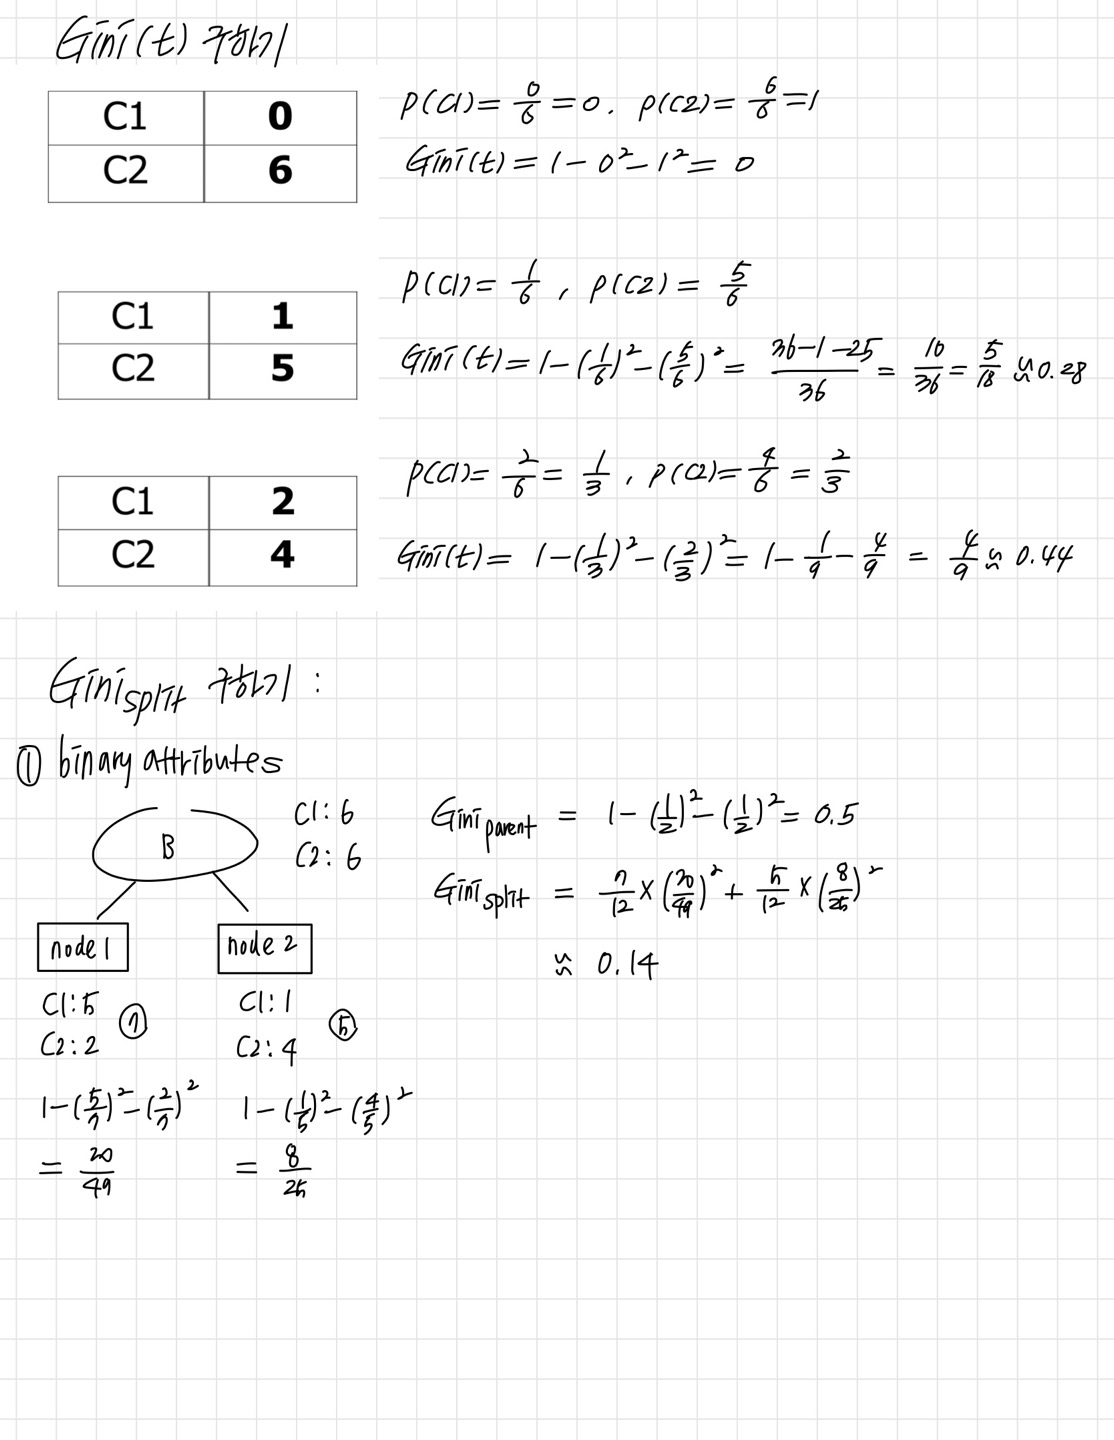 Gini(t) 구하기
C1 0
C2 6
P(C1) = 0/6 = 0. P(C2) = 6/6 = 1
Gini(t) = 1 - 0² - 1² = 0
C1 1
C2 5
P(C1) = 1/6 , P(C2) = 5/6
Gini(t) = 1 - (1/6)² - (5/6)² = (36-1-25)/36 = 10/36 = 5/18 ≈ 0.28
C1 2
C2 4
P(C1) = 2/6 = 1/3 , P(C2) = 4/6 = 2/3
Gini(t) = 1 - (1/3)² - (2/3)² = 1 - 1/9 - 4/9 = 4/9 ≈ 0.44
Gini split 구하기 :
① binary attributes
B
C1: 6
C2: 6
node 1
node 2
C1: 5
C2: 2
⑦
C1: 1
C2: 4
⑤
1 - (5/7)² - (2/7)²
= 20/49
1 - (1/5)² - (4/5)²
= 8/25
Gini parent = 1 - (1/2)² - (1/2)² = 0.5
Gini split = 7/12 × (20/49)² + 5/12 × (8/25)²
≈ 0.14